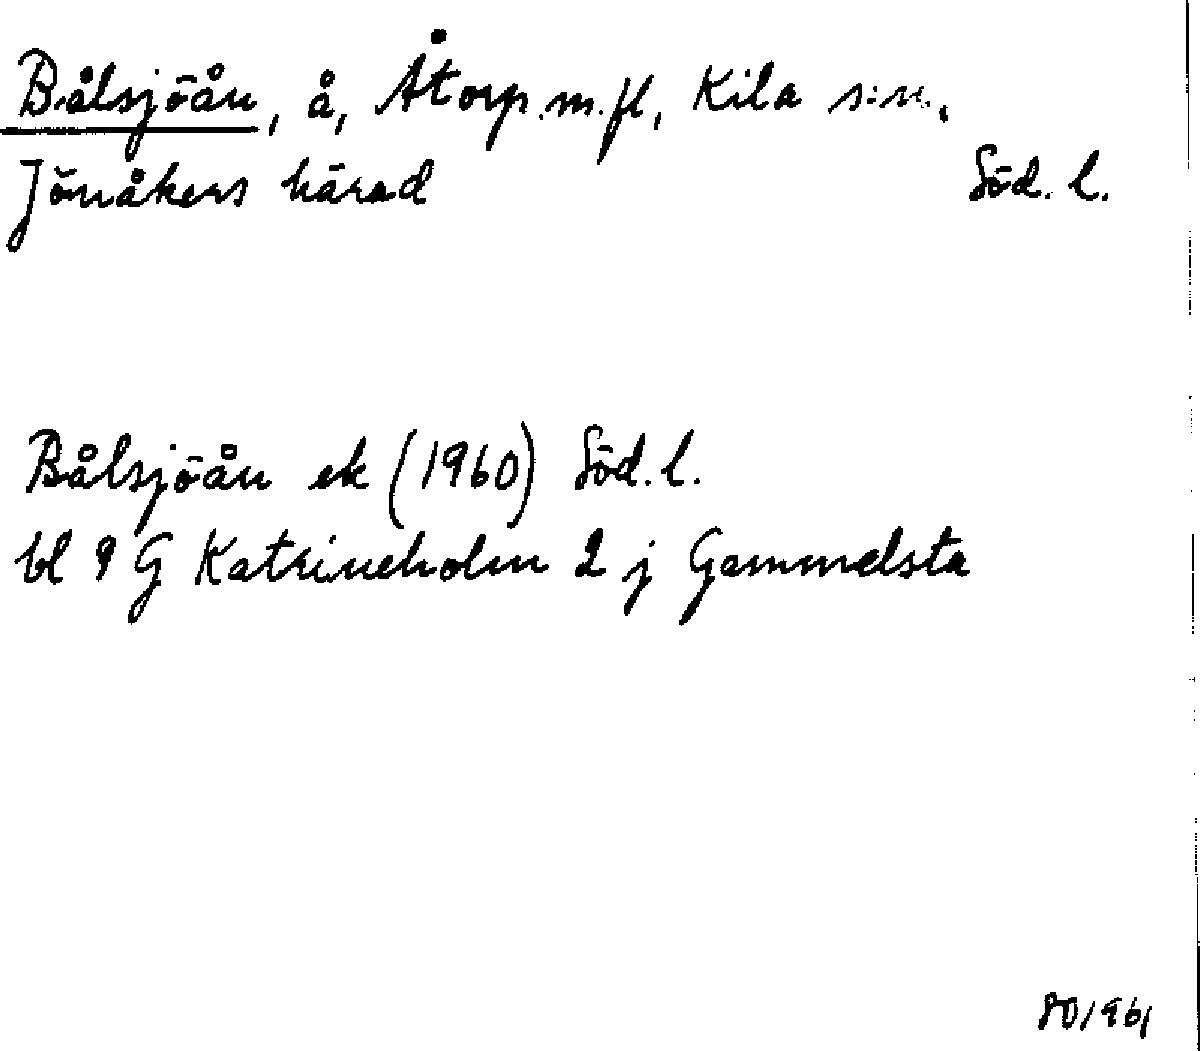 Bålsjöån, å, Åtorp m.fl, Kila s:n,
Jönåkers härad Söd. l.
Bålsjöån ek (1960) Söd. l.
bl 9 G Katrineholm 2 j Gammelsta